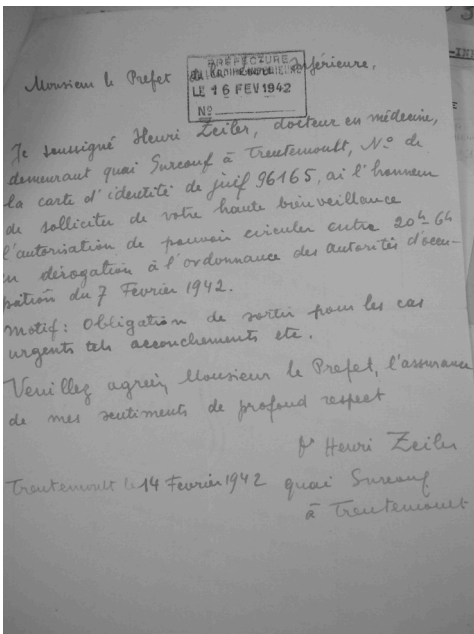 Monsieur le Prefet de la Loire Inférieure,
PREFECTURE
LE 16 FEV 1942
No
Je soussigné Henri Zeiler, docteur en médecine,
demeurant quai Surcouf à Trentemoult, No de
la carte d'identité de juif 96165, ai l'honneur
de solliciter de votre haute bienveillance
l'autorisation de pouvoir circuler entre 20h-6h
en dérogation à l'ordonnance des autorités d'occu-
pation du 7 Fevrier 1942.
Motif: Obligation de sortir pour les cas
urgents tels accouchements etc.
Veuillez agréer, Monsieur le Prefet, l'assurance
de mes sentiments de profond respect
Dr Henri Zeiler
Trentemoult le 14 Fevrier 1942 quai Surcouf
à Trentemoult